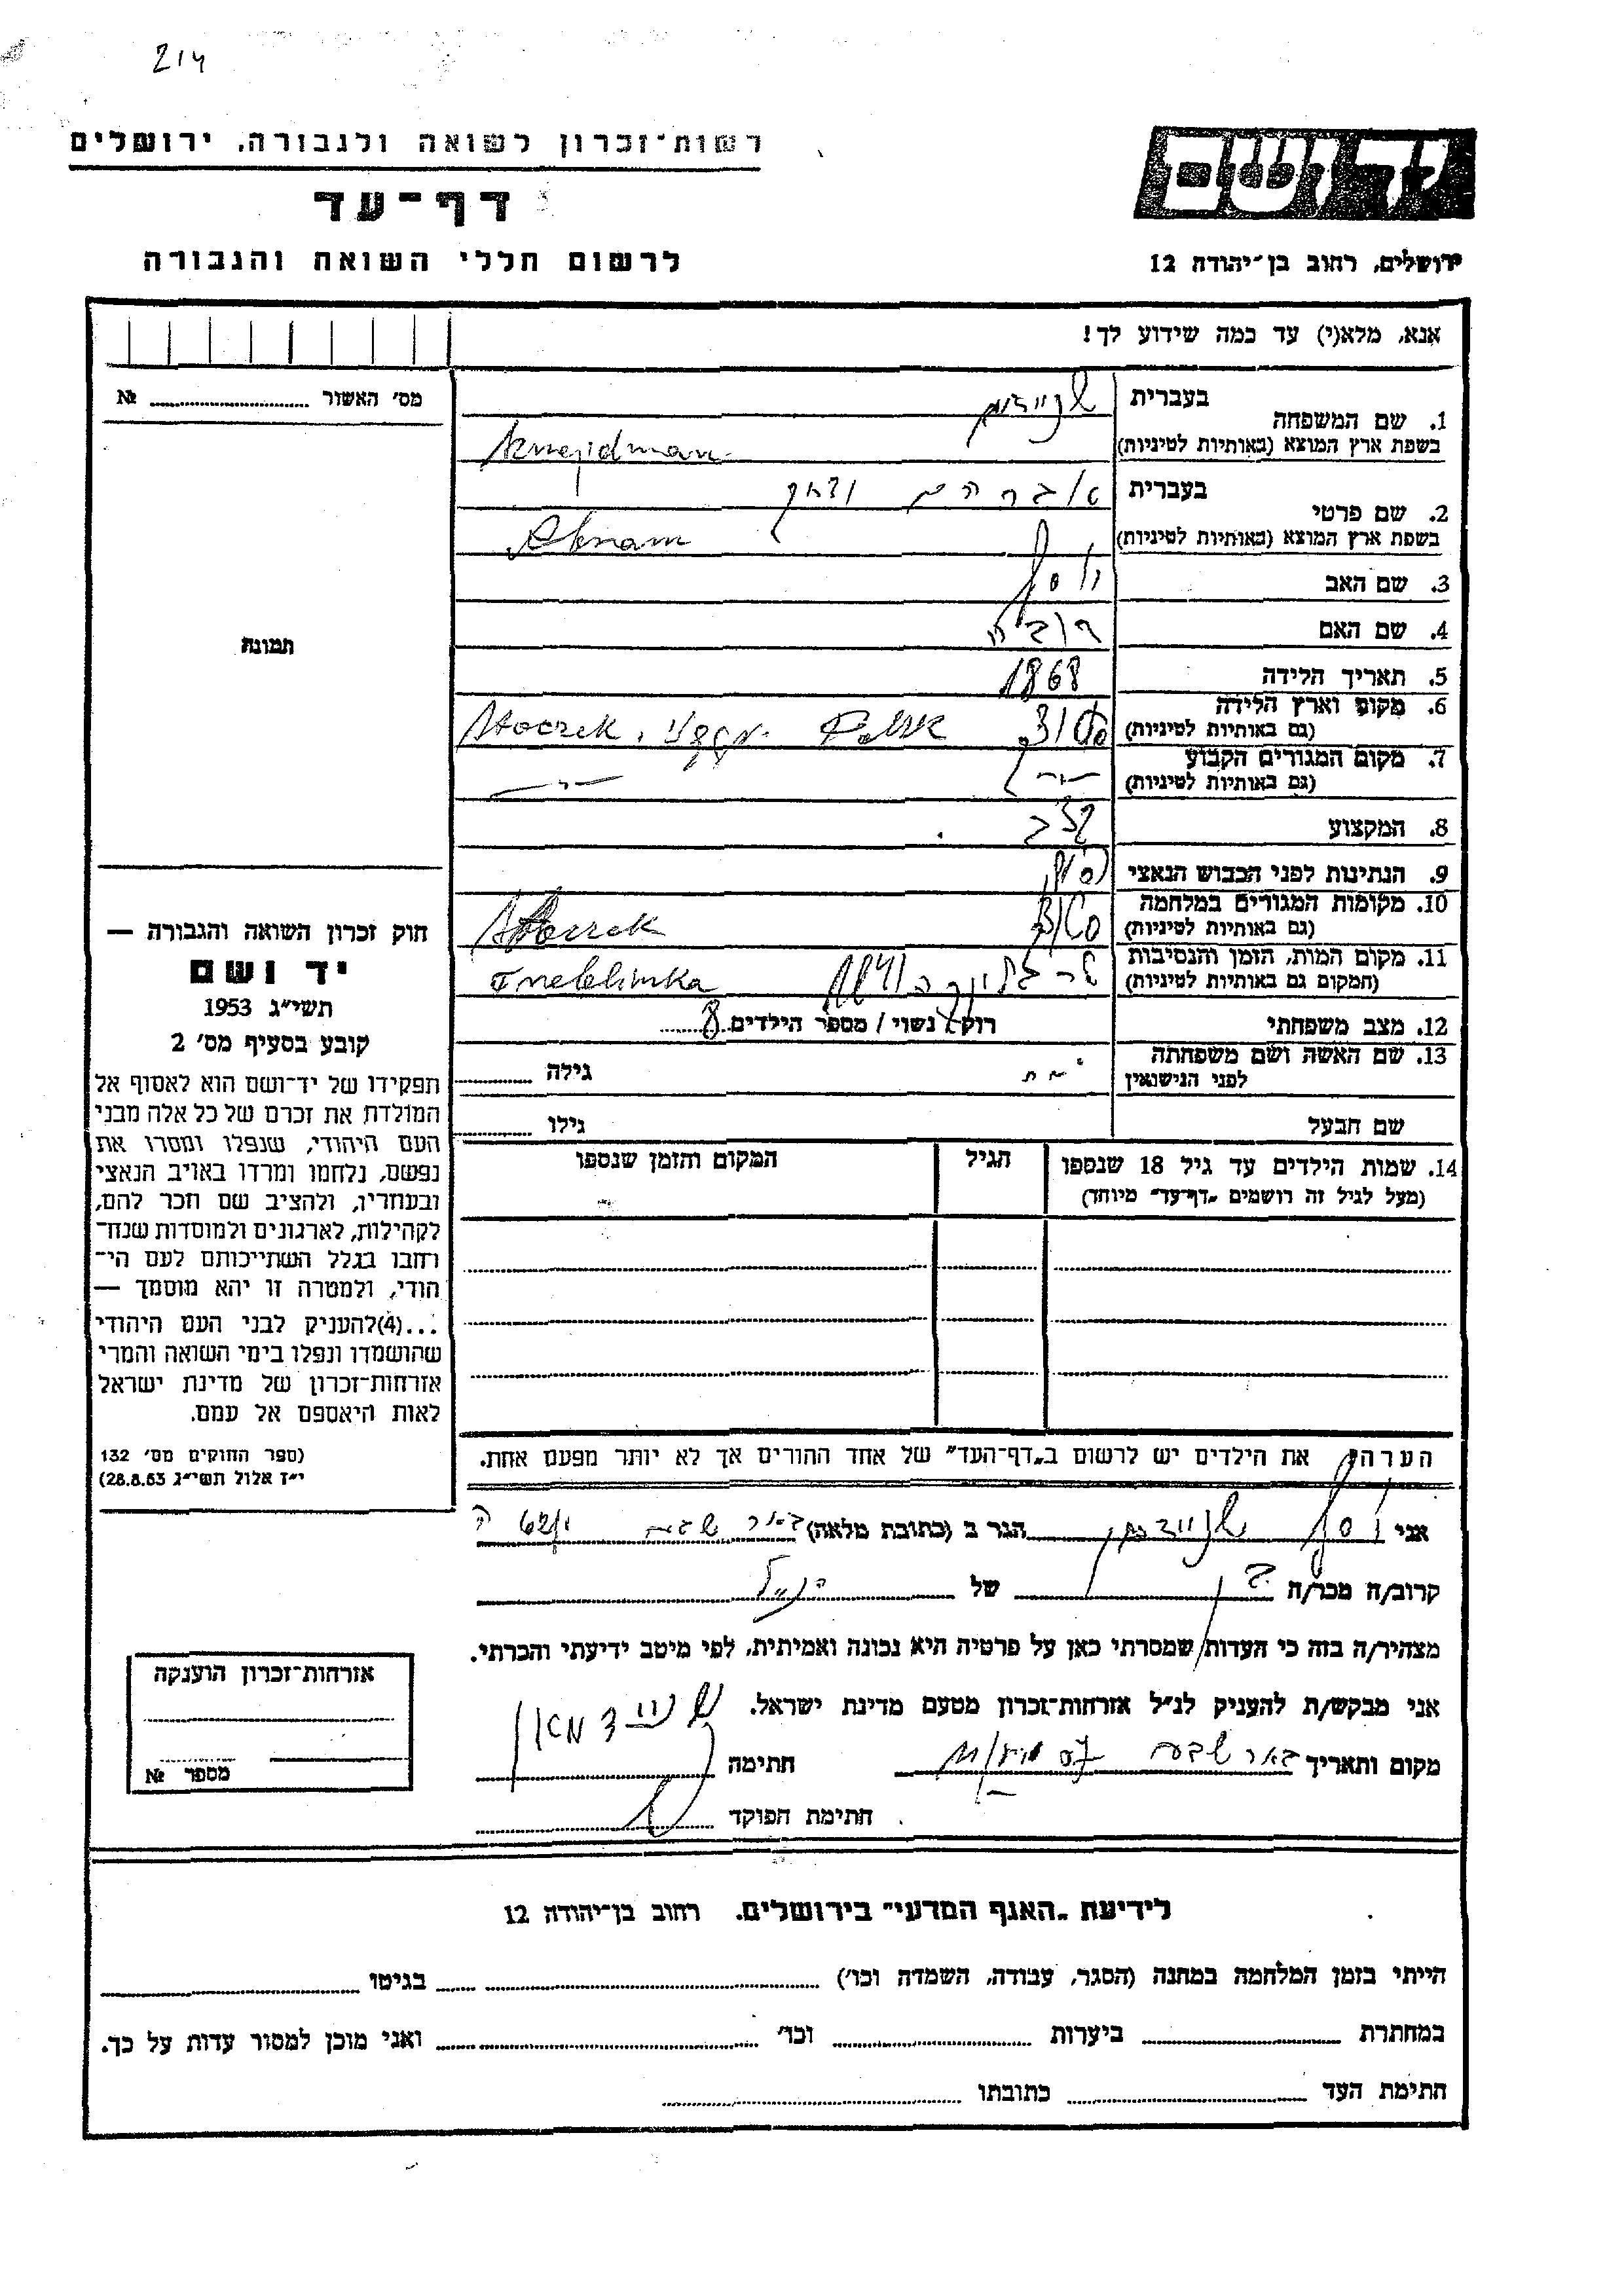 214
יד ושם
רשות־זכרון לשואה ולגבורה, ירושלים
דף־עד
לרשום חללי השואה והגבורה
ירושלים, רחוב בן־יהודה 12
אנא, מלא(י) עד כמה שידוע לך!
מס׳ האשור № ........
תמונה
1. שם המשפחה
בעברית שניידמן
בשפת ארץ המוצא (באותיות לטיניות) Sznejdman
2. שם פרטי
בעברית אברהם
בשפת ארץ המוצא (באותיות לטיניות) Abram
3. שם האב יוסף
4. שם האם
5. תאריך הלידה 1868
6. מקום וארץ הלידה
(גם באותיות לטיניות) Stoczek, Polsk
7. מקום המגורים הקבוע
(גם באותיות לטיניות) —״— —״—
8. המקצוע
9. הנתינות לפני הכבוש הנאצי
10. מקומות המגורים במלחמה
(גם באותיות לטיניות) Stoczek
11. מקום המות, הזמן והנסיבות
(המקום גם באותיות לטיניות) טרבלינקה Treblinka
12. מצב משפחתי רווק / נשוי / מספר הילדים 8
13. שם האשה ושם משפחתה
לפני הנישואין
גילה ........
שם הבעל גילו ........
14. שמות הילדים עד גיל 18 שנספו
(מעל לגיל זה רושמים „דף־עד״ מיוחד)
הגיל
המקום והזמן שנספו
הערה: את הילדים יש לרשום ב„דף־העד״ של אחד ההורים אך לא יותר מפעם אחת.
חוק זכרון השואה והגבורה —
יד ושם
תשי״ג 1953
קובע בסעיף מס׳ 2
תפקידו של יד־ושם הוא לאסוף אל
המולדת את זכרם של כל אלה מבני
העם היהודי, שנפלו ומסרו את
נפשם, נלחמו ומרדו באויב הנאצי
ובעוזריו, ולהציב שם וזכר להם,
לקהילות, לארגונים ולמוסדות שנח־
רבו בגלל השתייכותם לעם הי־
הודי, ולמטרה זו יהא מוסמך —
...(4)להעניק לבני העם היהודי
שהושמדו ונפלו בימי השואה והמרי
אזרחות־זכרון של מדינת ישראל
לאות היאספם אל עמם.
(ספר החוקים מס׳ 132
י״ז אלול תשי״ג 28.8.53)
אני יוסף שניידמן הגר ב (כתובת מלאה) באר שבע
קרוב/ה מכר/ה בן של הנ״ל
מצהיר/ה בזה כי העדות שמסרתי כאן על פרטיה היא נכונה ואמיתית, לפי מיטב ידיעתי והכרתי.
אני מבקש/ת להעניק לנ״ל אזרחות־זכרון מטעם מדינת ישראל.
מקום ותאריך באר שבע חתימה שניידמאן
חתימת הפוקד
אזרחות־זכרון הוענקה
מספר №
לידיעת „האגף המדעי״ בירושלים. רחוב בן־יהודה 12
הייתי בזמן המלחמה במחנה (הסגר, עבודה, השמדה וכו׳) ........ בגיטו ........
במחתרת ........ ביערות ........ וכו׳ ........ ואני מוכן למסור עדות על כך.
חתימת העד ........ כתובתו ........